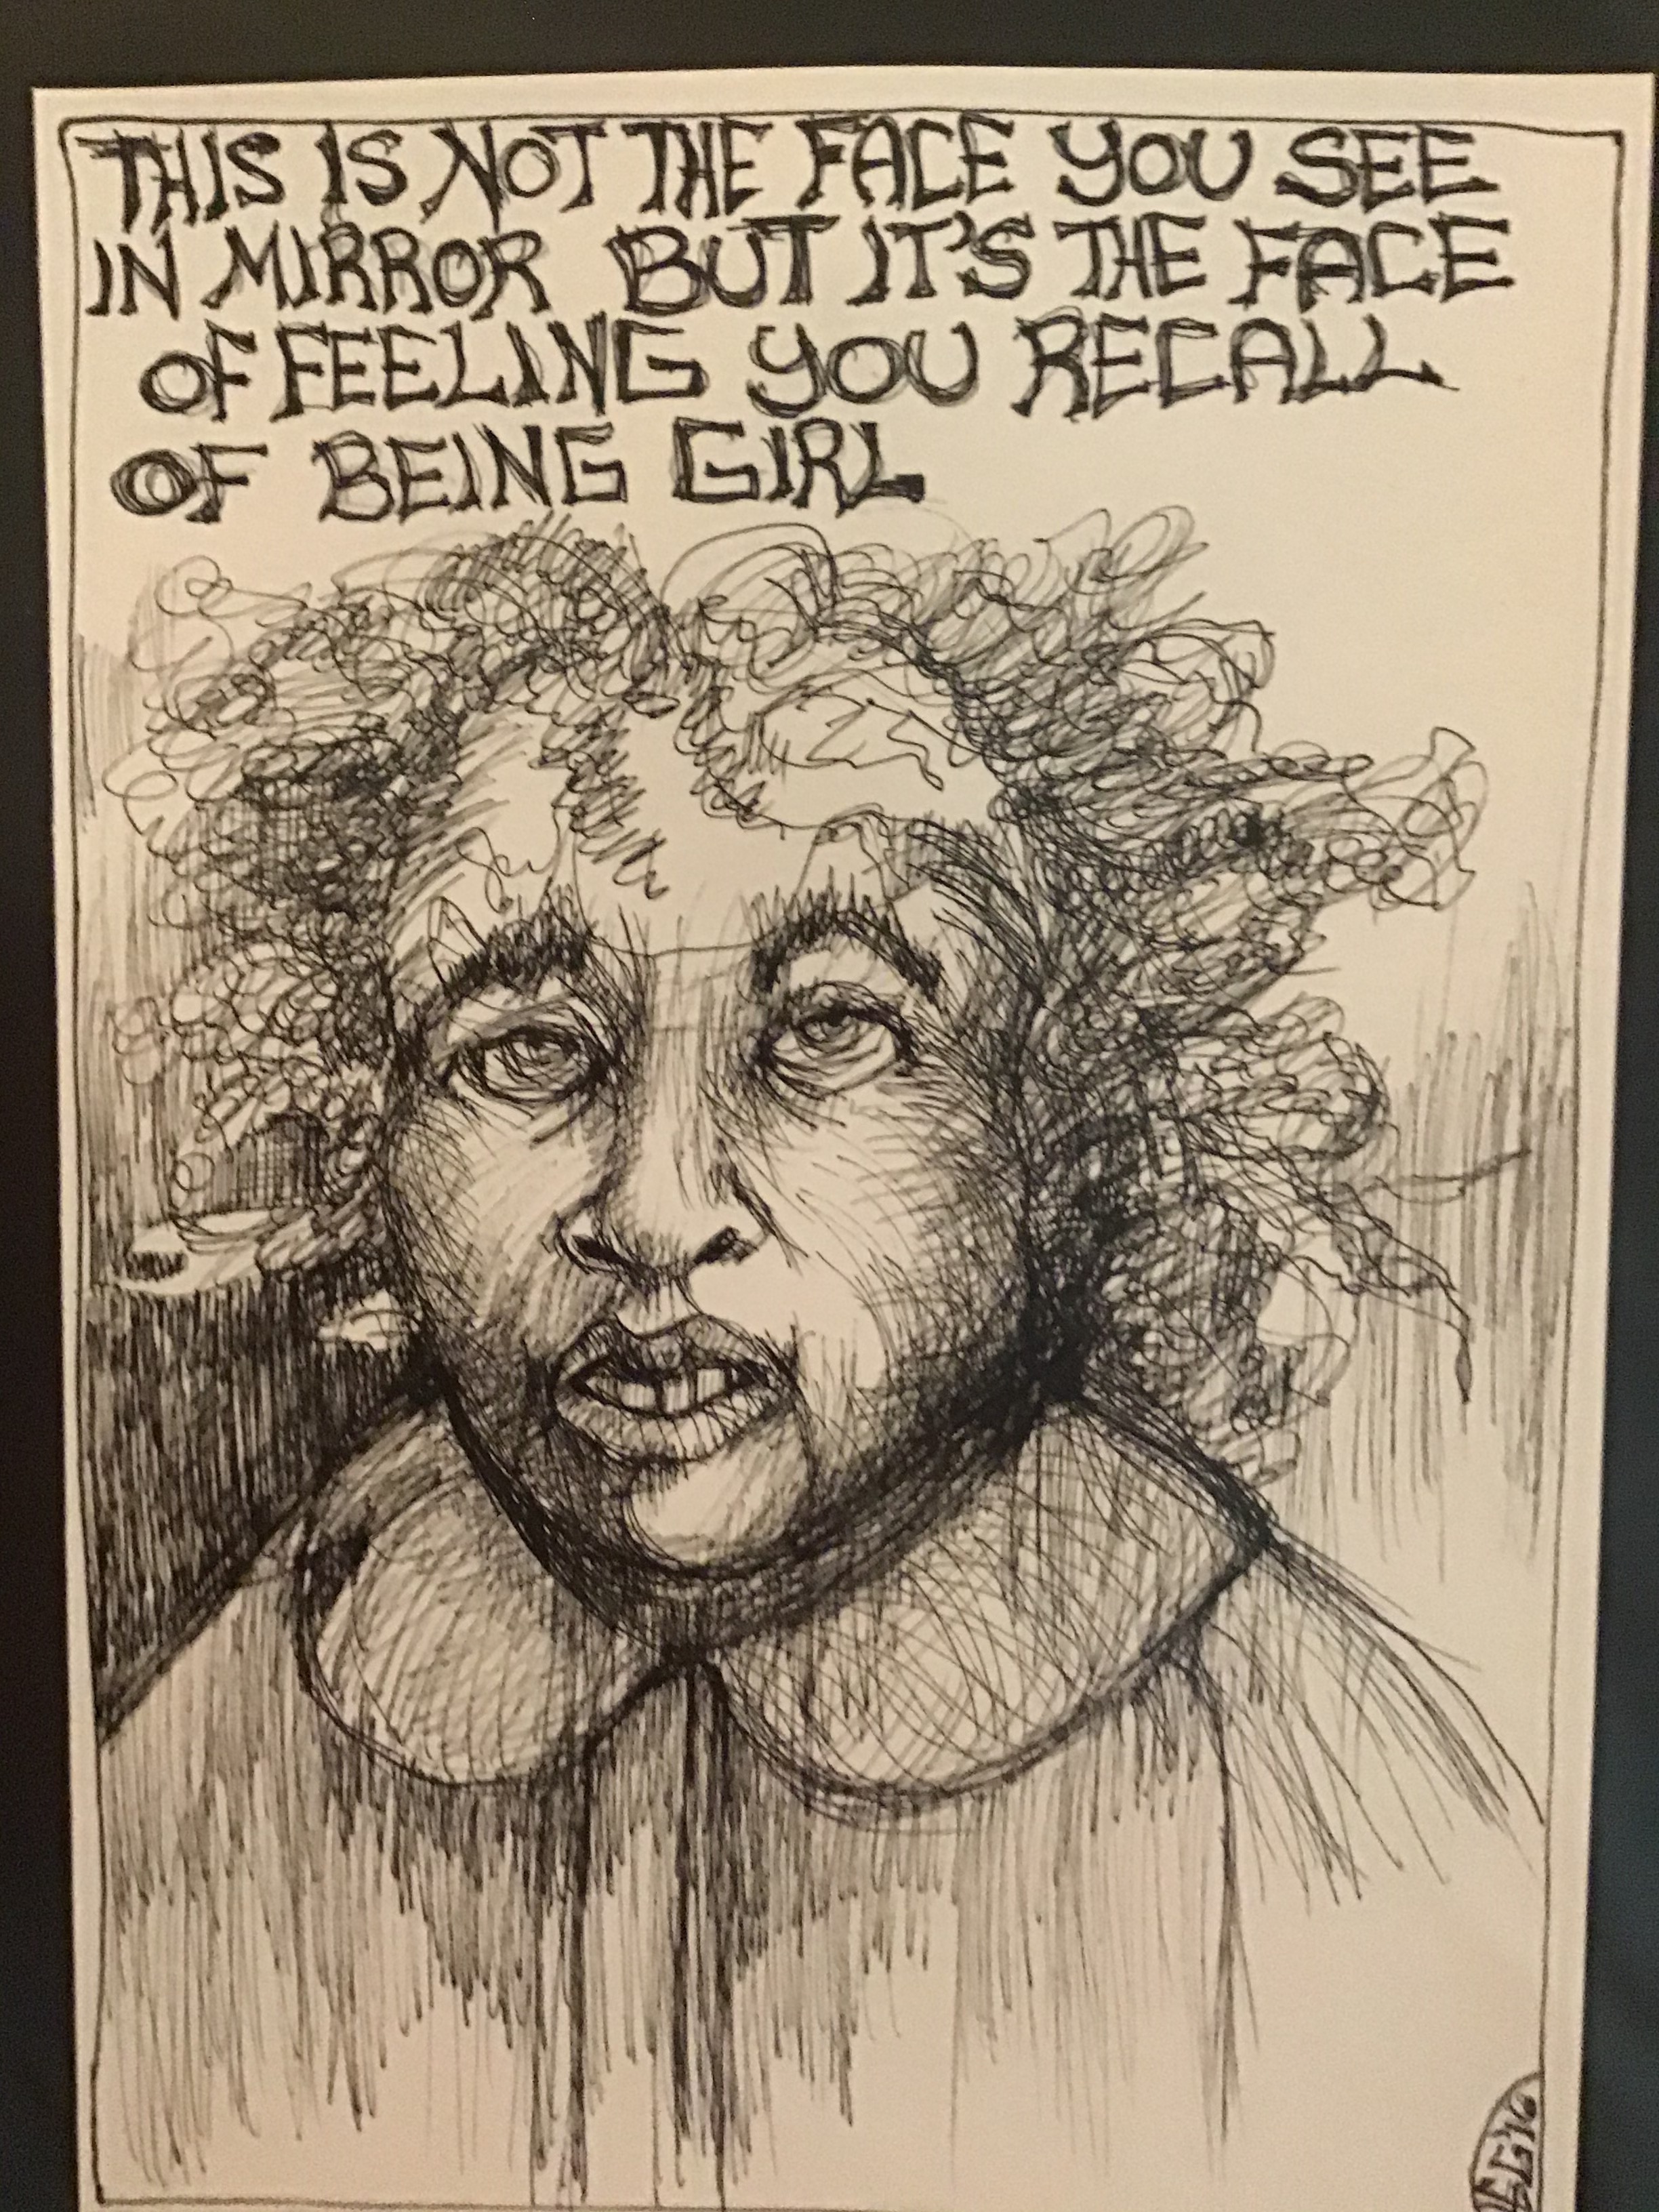 THIS IS NOT THE FACE YOU SEE
IN MIRROR BUT IT'S THE FACE
OF FEELING YOU RECALL
OF BEING GIRL